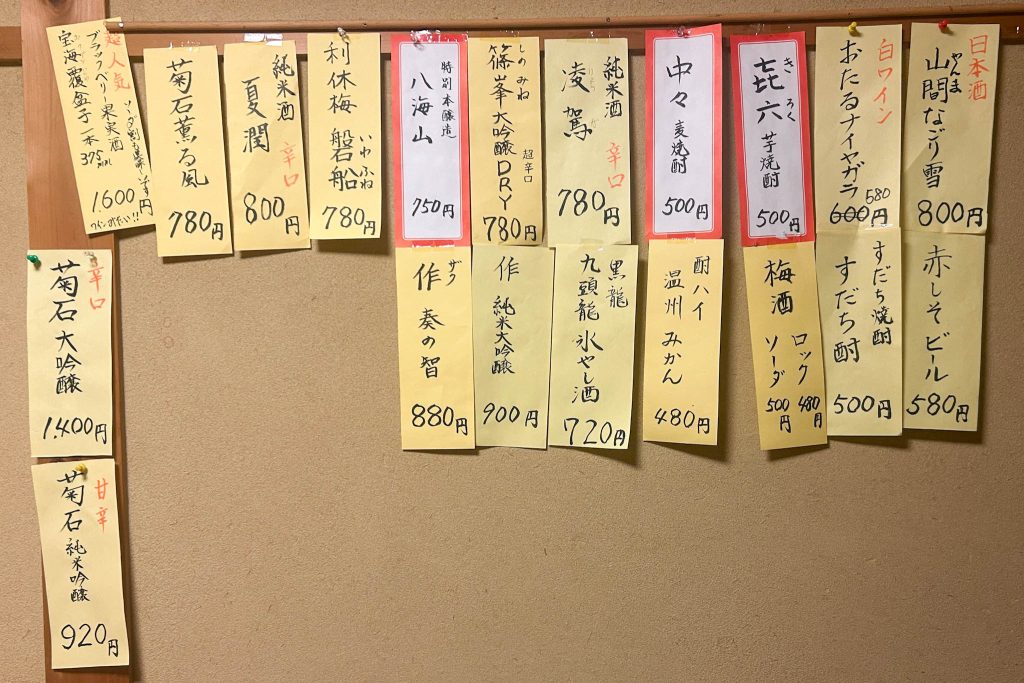 日本酒
山間なごり雪
やんま
800円
白ワイン
おたるナイヤガラ
600
580
円
㐂六
きろく
芋焼酎
500円
中々
麦焼酎
500円
純米酒
凌駕
りょうが
辛口
780円
篠峯大吟醸DRY
しのみね
超辛口
780円
特別本醸造
八海山
750円
利休梅 磐船
いわふね
780円
純米酒
夏潤
辛口
800円
菊石薫る風
780円
超人気
ブラックベリー果実酒
宝海 覆盆子 一本 375ml
1,600円
赤しそビール
580円
すだち焼酎
すだち酎
500円
梅酒
ロック 480円
ソーダ 500円
酎ハイ
温州みかん
480円
黒龍
九頭龍 氷やし酒
720円
作
純米大吟醸
900円
作
ザク
奏の智
880円
辛口
菊石大吟醸
1,400円
甘辛
菊石純米吟醸
920円